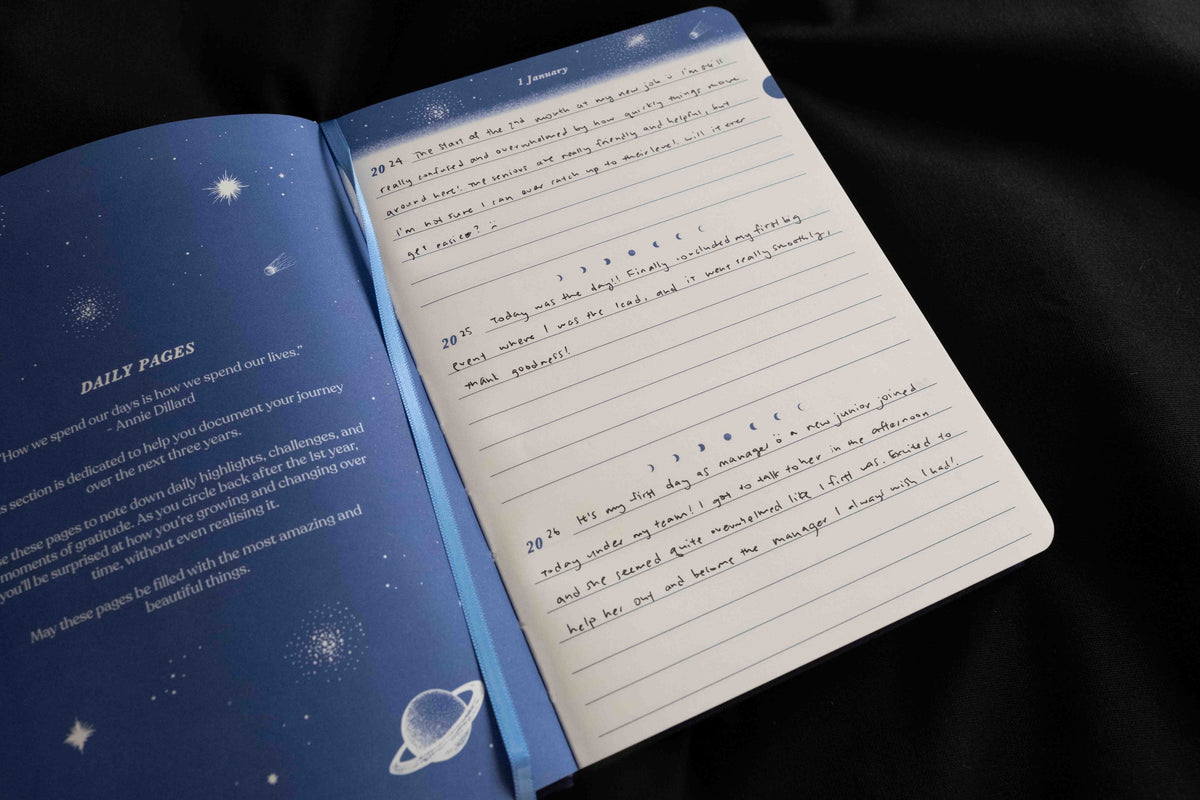 DAILY PAGES
"How we spend our days is how we spend our lives."
- Annie Dillard
section is dedicated to help you document your journey
over the next three years.
these pages to note down daily highlights, challenges, and
moments of gratitude. As you circle back after the 1st year,
you'll be surprised at how you're growing and changing over
time, without even realising it.
May these pages be filled with the most amazing and
beautiful things.
1 January
2024 The start of the 2nd month at my new job :) I'm still
really confused and overwhelmed by how quickly things move
around here! The seniors are really friendly and helpful, but
I'm not sure I can ever catch up to their level. Will it ever
get easier? :(
2025 Today was the day!! Finally concluded my first big
event where I was the lead, and it went really smoothly,
thank goodness!
2026 It's my first day as manager :) a new junior joined
today under my team! I got to talk to her in the afternoon
and she seemed quite overwhelmed like I first was. Excited to
help her out and become the manager I always wish I had!